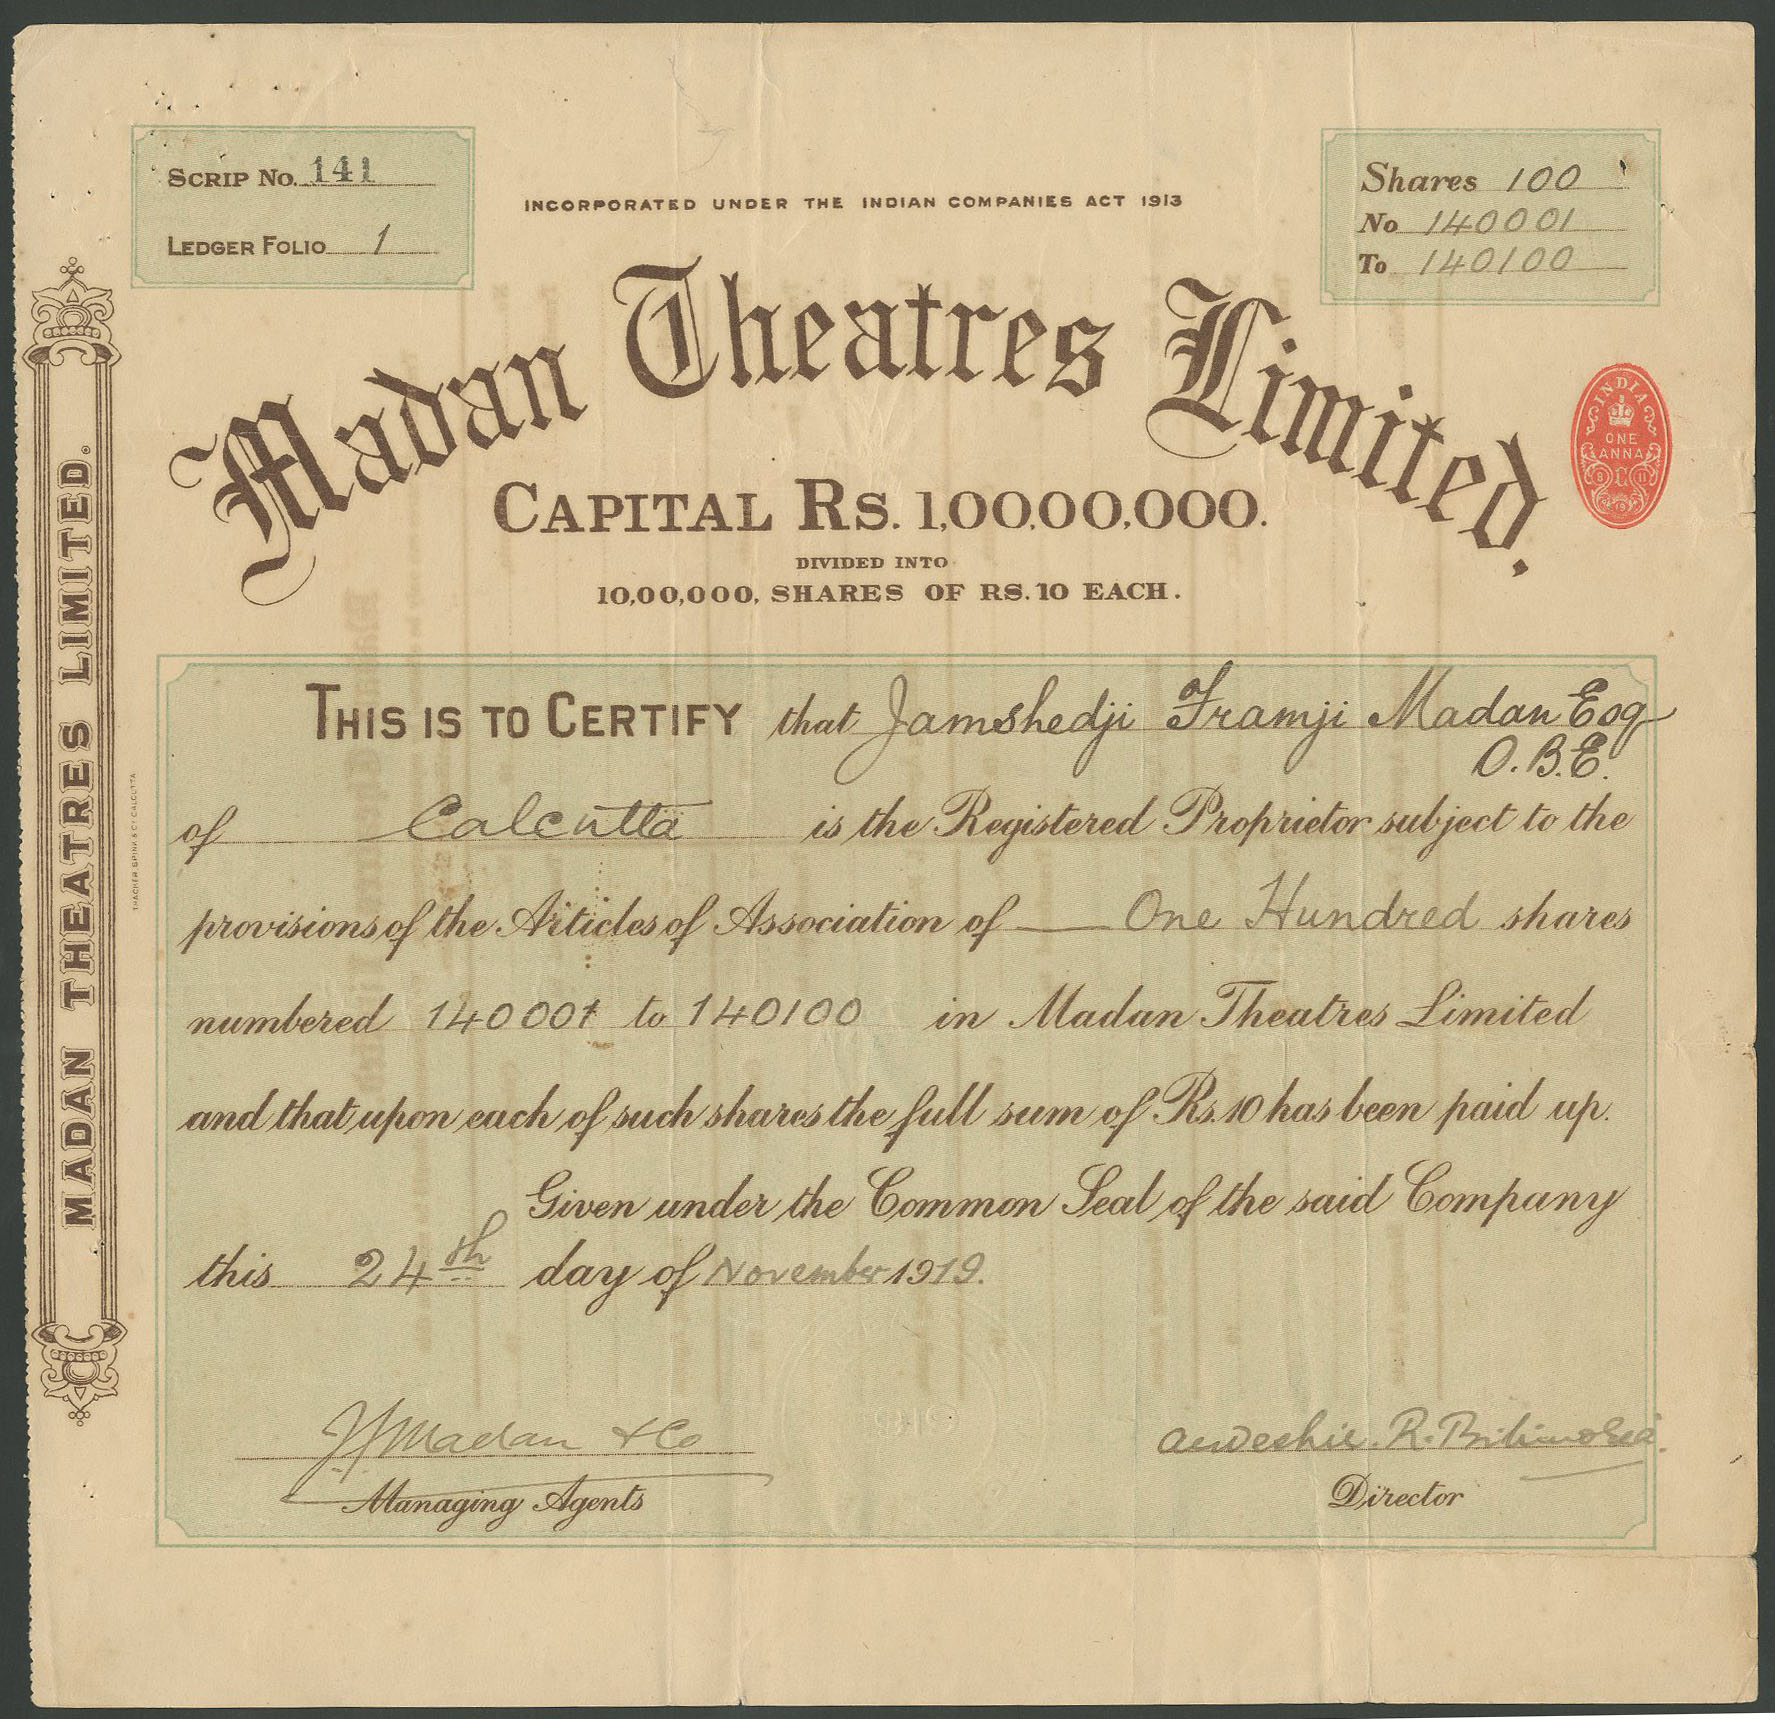 SCRIP NO. 141
LEDGER FOLIO 1
INCORPORATED UNDER THE INDIAN COMPANIES ACT 1913
Shares 100
No 140001
To 140100
Madan Theatres Limited.
INDIA
ONE
ANNA
CAPITAL RS. 1,00,00,000.
DIVIDED INTO
10,00,000, SHARES OF RS. 10 EACH.
MADAN THEATRES LIMITED.
THACKER SPINK & CO CALCUTTA
THIS IS TO CERTIFY that Jamshedji Framji Madan Esq
O.B.E.
of Calcutta is the Registered Proprietor subject to the
provisions of the Articles of Association of One Hundred shares
numbered 140001 to 140100 in Madan Theatres Limited
and that upon each of such shares the full sum of Rs. 10 has been paid up.
Given under the Common Seal of the said Company
this 24th day of November 1919.
J F Madan & Co
Managing Agents
R. Bilimoria
Director